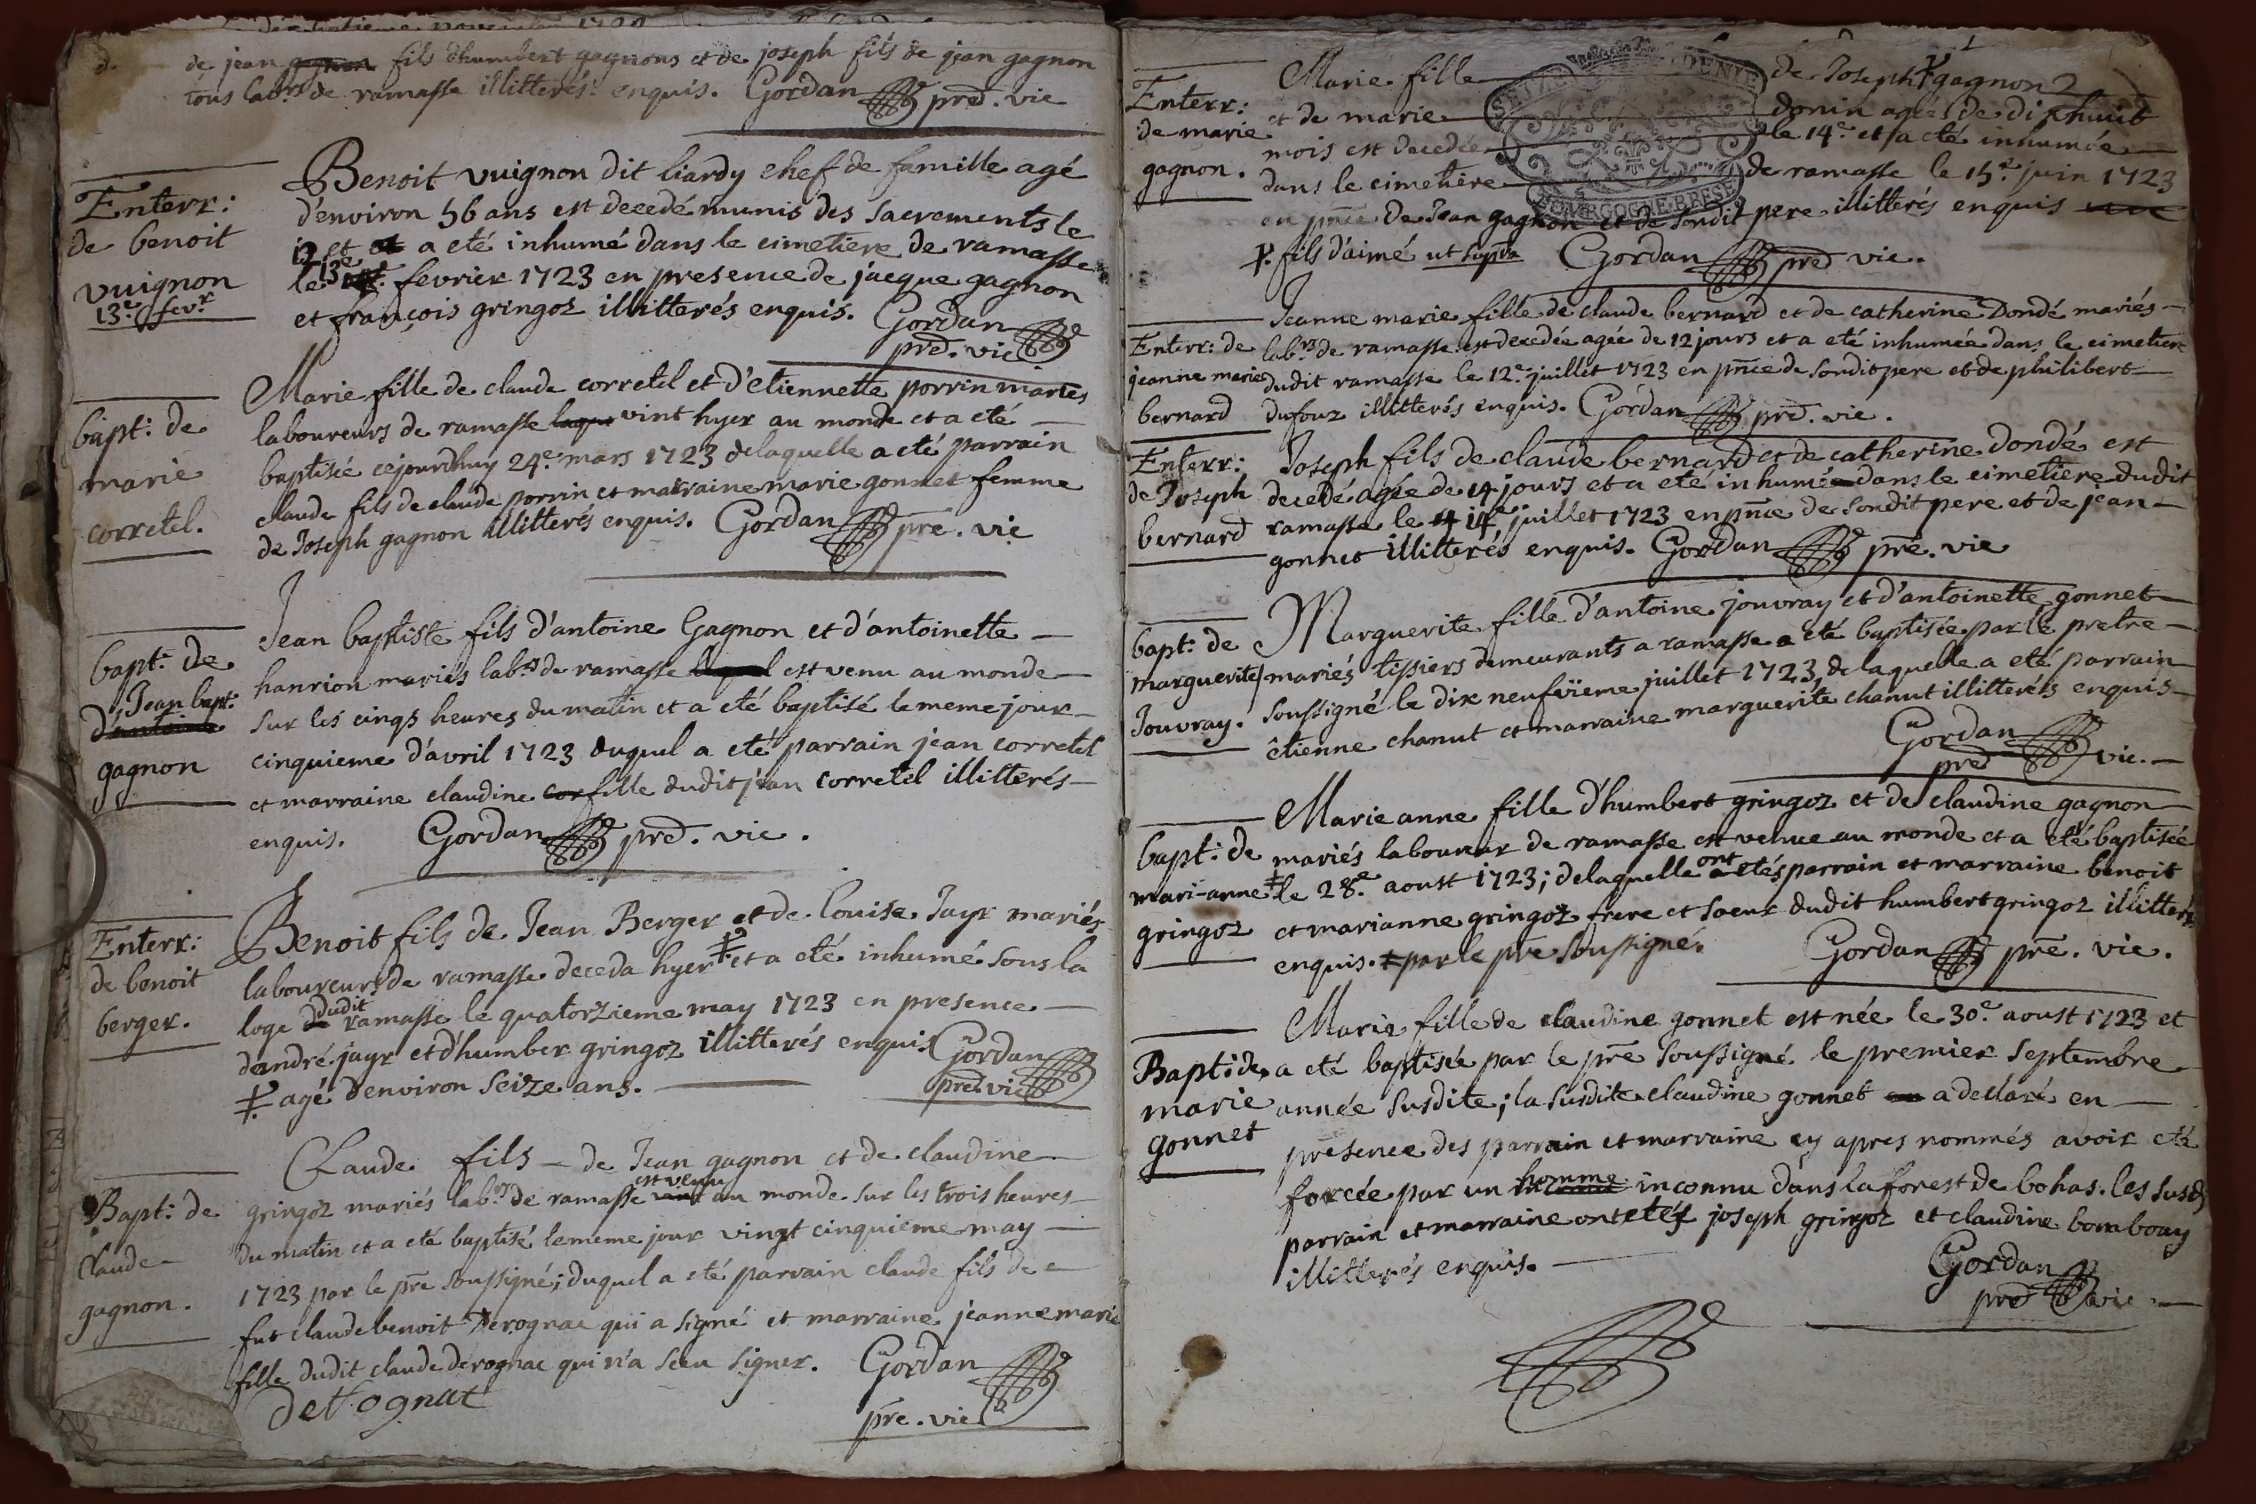 de jean gagnon fils d'humbert gagnons et de joseph fils de jean gagnon
tous lab.rs de ramasse illitterés enquis. Gordan pred. vic
Enterr:
de benoit
vuignon
13.e fevr.
Benoit vuignon dit liardy chef de famille agé
d'environ 56 ans est decedé munis des sacrements le
12 et a eté inhumé dans le cimetiere de ramasse
le 13.e fevrier 1723 en presence de jacque gagnon
et françois gringoz illitterés enquis. Gordan
pred. vic
bapt: de
marie
corretel.
Marie fille de claude corretel et d'etiennette porrin mariés
laboureurs de ramasse laqu vint hyer au monde et a eté
baptisée cejourdhuy 24.e mars 1723 delaquelle a eté parrain
claude fils de claude porrin et marraine marie gonnet femme
de Joseph gagnon illitterés enquis. Gordan pre. vic
bapt: de
Jean bapt.
d'antoine
gagnon
Jean baptiste fils d'antoine Gagnon et d'antoinette
hanrion mariés lab.rs de ramasse lequel est venu au monde
sur les cinqs heures du matin et a eté baptisé le meme jour
cinquieme d'avril 1723 duquel a eté parrain jean corretel
et marraine claudine cor fille dudit jean corretel illitterés
enquis. Gordan pred. vic.
Enterr:
de benoit
berger.
Benoit fils de Jean Berger et de louise Jayr mariés
laboureurs de ramasse deceda hyer ‡ et a eté inhumé sous la
loge dudit ramasse le quatorzieme may 1723 en presence
d'andré jayr et d'humber gringoz illitterés enquis Gordan
‡ agé d'environ seize ans. pred. vic
Bapt: de
claude
gagnon.
Claude fils de Jean gagnon et de claudine
gringoz mariés lab.rs de ramasse est venu au monde sur les trois heures
du matin et a eté baptisé le meme jour vingt cinquieme may
1723 par le pre soussigné; duquel a eté parrain claude fils de
fut claude benoit derognac qui a signé et marraine jeanne marie
fille dudit claude derognac qui n'a sceu signer. Gordan
derognat
pre. vic
Enterr:
de marie
gagnon.
Marie fille de Joseph ‡ gagnon
et de marie donin agée de dixhuit
mois est decedée le 14.e et a eté inhumée
dans le cimetiere de ramasse le 15.e juin 1723
en pnce de Jean gagnon et de sondit pere illitterés enquis
‡ fils d'aimé ut supra Gordan pred vic.
BOURGOGNE.BRESSE
Enterr: de
jeanne marie
bernard
Jeanne marie fille de claude bernard et de catherine Dondé mariés
lab.rs de ramasse est decedée agée de 12 jours et a eté inhumée dans le cimetiere
dudit ramasse le 12.e juillet 1723 en pnce de sondit pere et de philibert
dufour illitterés enquis. Gordan pred. vic.
Enterr:
de Joseph
bernard
Joseph fils de claude bernard et de catherine dondé est
decedé agée de 14 jours et a eté inhumé dans le cimetiere dudit
ramasse le 14 14.e juillet 1723 en pnce de sondit pere et de jean
gonnet illitterés enquis. Gordan pre. vic
bapt: de
marguerite
Jouvray.
Marguerite fille d'antoine jouvray et d'antoinette gonnet
mariés tissiers demeurants a ramasse a eté baptisée par le pretre
soussigné le dix neufvieme juillet 1723, de laquelle a eté parrain
êtienne chanut et marraine marguerite chanut illitterés enquis
Gordan
pred vic.
bapt: de
mari-anne
gringoz
Marie anne fille d'humbert gringoz et de claudine gagnon
mariés laboureur de ramasse est venue au monde et a eté baptisée
‡ le 28.e aoust 1723; delaquelle ont etés parrain et marraine benoit
et marianne gringoz frere et soeur dudit humbert gringoz illitterés
enquis. ‡ par le pre soussigné. Gordan pre. vic.
Bapt: de
marie
gonnet
Marie fille de claudine gonnet est née le 30.e aoust 1723 et
a eté baptisée par le pre soussigné le premier septembre
année susdite; la susdite claudine gonnet a declaré en
presence des parrain et marraine cy apres nommés avoir eté
forcée par un homme inconnu dans la forest de bohas. les susd
parrain et marraine ont etés joseph gringoz et claudine bomboay
illitterés enquis.
Gordan
pred vic